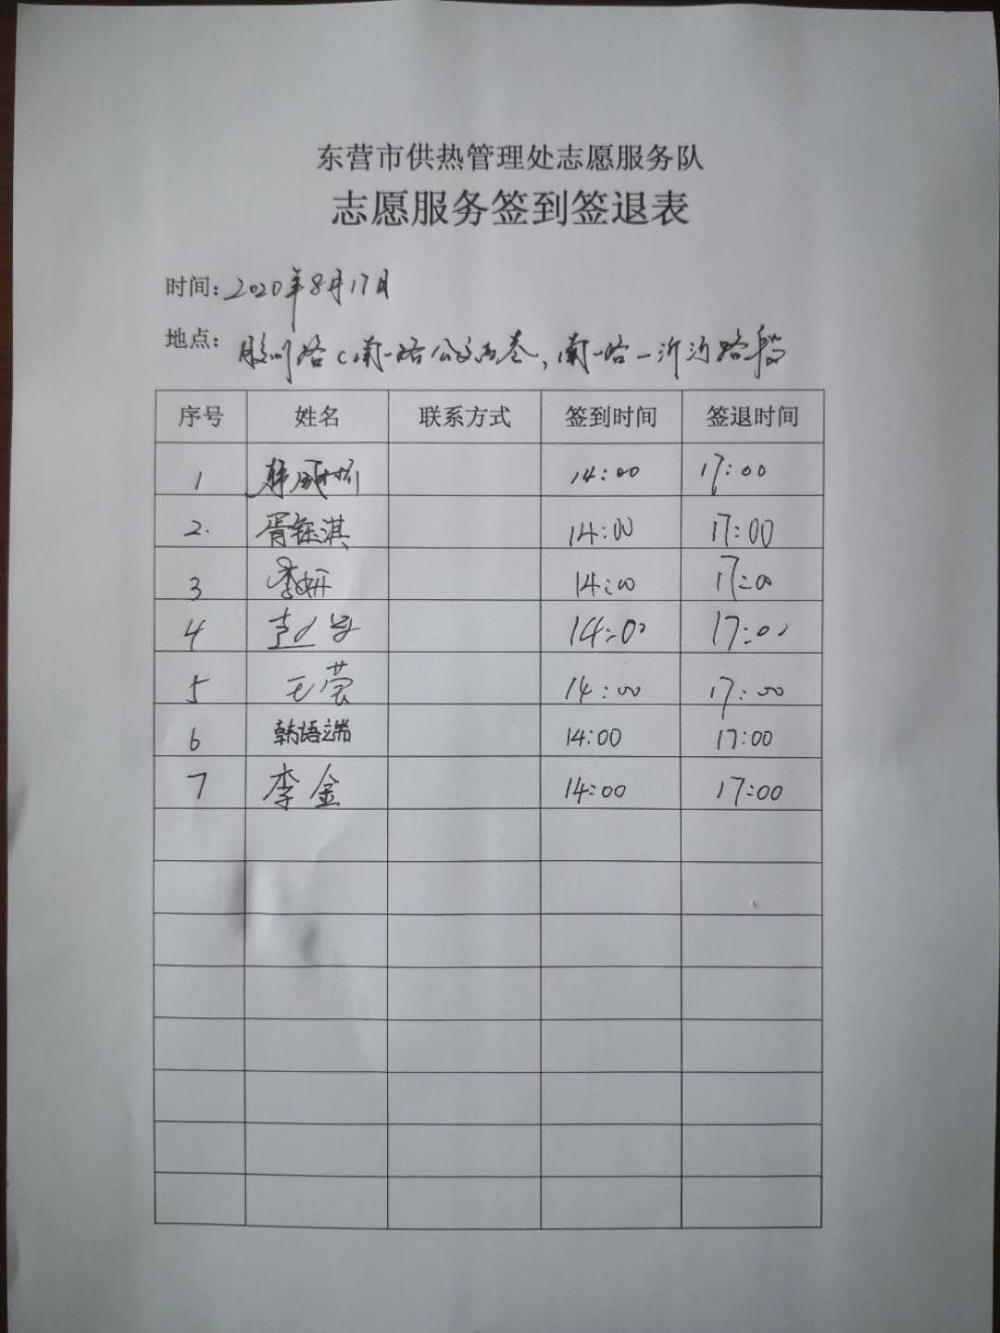 东营市供热管理处志愿服务队
志愿服务签到签退表
时间:2020年8月17日
地点: 胶州路(南一路 南一路一沂河路段
序号 姓名 联系方式 签到时间 签退时间
1 14:00 17:00
2. 胥钰淇 14:00 17:00
3 李妍 14:00 17:00
4 14:00 17:00
5 王莹 14:00 17:00
6 韩语端 14:00 17:00
7 李金 14:00 17:00